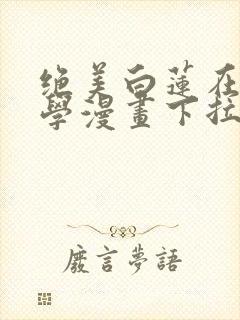 绝美白蓮在
學漫畫下拉
廢言夢語